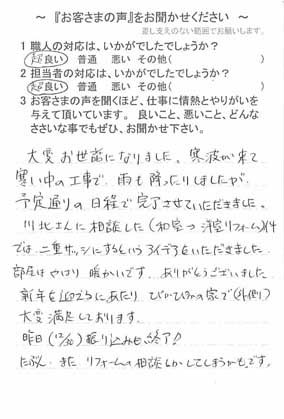 ～ 『お客さまの声』をお聞かせください ～
差し支えのない範囲でお願いします。
1 職人の対応は、いかがでしたでしょうか？
超良い 普通 悪い その他( )
2 担当者の対応は、いかがでしたでしょうか？
超良い 普通 悪い その他( )
3 お客さまの声を聞くほど、仕事に情熱とやりがいを
与えて頂いています。 良いこと、悪いこと、どんな
ささいな事でもぜひ、お聞かせ下さい。
大変お世話になりました。寒波が来て
寒い中の工事で、雨も降ったりしましたが、
予定通りの日程で完了させていただきました。
川北さんに相談した(和室→洋室リフォーム)件
では二重サッシにするというアイデアをいただきました
部屋はやはり暖かいです。ありがとうございました
新年を迎えるにあたり ぴかぴかの家で(外側)
大変満足しております。
昨日(12/30) 振り込みも終了!
たぶん、また リフォームの相談しかしてしまうかもです。